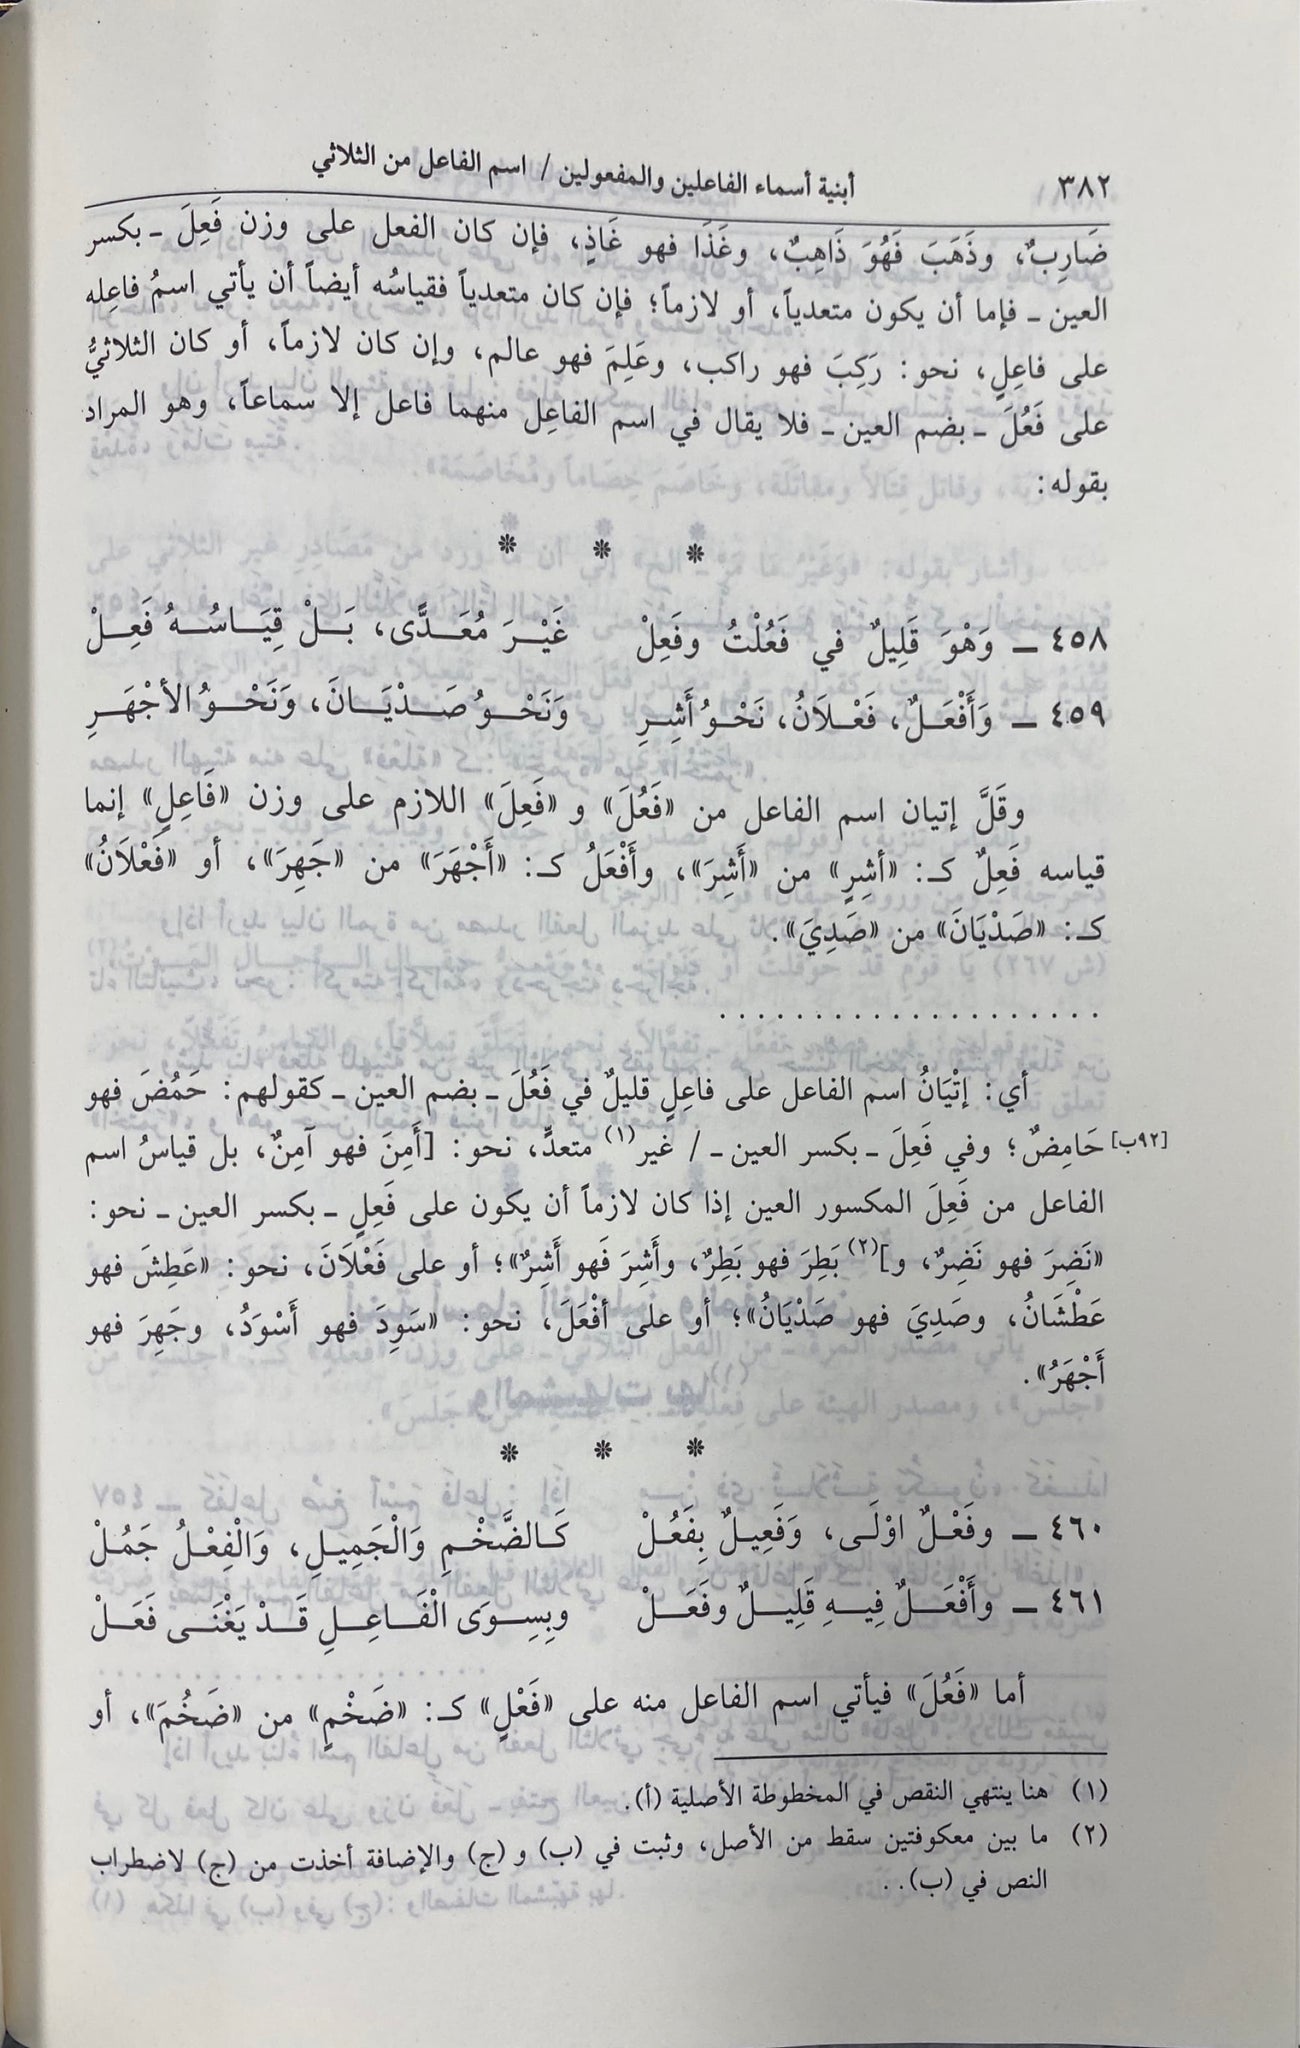 ٣٨٢ أبنية أسماء الفاعلين والمفعولين / اسم الفاعل من الثلاثي
ضَارِبٌ، وذَهَبَ فَهُوَ ذَاهِبٌ، وغَذَا فهو غَاذٍ، فإن كان الفعل على وزن فَعِلَ ـ بكسر
العين ـ فإما أن يكون متعدياً، أو لازماً؛ فإن كان متعدياً فقياسُه أيضاً أن يأتي اسمُ فاعِله
على فاعِلٍ، نحو: رَكِبَ فهو راكب، وعَلِمَ فهو عالم، وإن كان لازماً، أو كان الثلاثيُّ
على فَعُلَ ـ بضم العين ـ فلا يقال في اسم الفاعِل منهما فاعل إلا سماعاً، وهو المراد
بقوله:
* * *
٤٥٨ ـ وَهْوَ قَلِيلٌ في فَعُلْتُ وفَعِلْ غَيْرَ مُعَدًّى، بَلْ قِيَاسُهُ فَعِلْ
٤٥٩ ـ وَأَفْعَلٌ، فَعْلاَنُ، نَحْوُ أَشِرِ وَنَحْوُ صَدْيَانَ، وَنَحْوُ الأجْهَرِ
وقَلَّ إتيان اسم الفاعل من «فَعُلَ» و «فَعِلَ» اللازم على وزن «فَاعِلٍ» إنما
قياسه فَعِلٌ كـ: «أشِرٍ» من «أَشِرَ»، وأفْعَلُ كـ: «أَجْهَرَ» من «جَهِرَ»، أو «فَعْلاَنُ»
كـ: «صَدْيَانَ» من «صَدِيَ».
. . . . . . . . . . . . . . . . . . .
أي: إتْيَانُ اسم الفاعل على فاعِلٍ قليلٌ في فَعُلَ ـ بضم العين ـ كقولهم: حَمُضَ فهو
[٩٢ب] حَامِضٌ؛ وفي فَعِلَ ـ بكسر العين ـ / غير(١) متعدٍّ، نحو: [أَمِنَ فهو آمِنٌ، بل قياسُ اسم
الفاعل من فَعِلَ المكسور العين إذا كان لازماً أن يكون على فَعِلٍ ـ بكسر العين ـ نحو:
«نَضِرَ فهو نَضِرٌ، و](٢) بَطِرَ فهو بَطِرٌ، وأَشِرَ فَهو أَشِرٌ»؛ أو على فَعْلَانَ، نحو: «عَطِشَ فهو
عَطْشَانُ، وصَدِيَ فهو صَدْيَانُ»؛ أو على أفْعَلَ، نحو: «سَوِدَ فهو أَسْوَدُ، وجَهِرَ فهو
أَجْهَرُ».
* * *
٤٦٠ ـ وفَعْلٌ اوْلَى، وَفَعِيلٌ بِفَعُلْ كَالضَّخْمِ وَالْجَمِيلِ، وَالْفِعْلُ جَمُلْ
٤٦١ ـ وأَفْعَلٌ فِيهِ قَلِيلٌ وفَعَلْ وبِسِوَى الْفَاعِلِ قَدْ يَغْنَى فَعَلْ
أما «فَعُلَ» فيأتي اسم الفاعل منه على «فَعْلٍ» كـ: «ضَخْمٍ» من «ضَخُمَ»، أو
(١) هنا ينتهي النقص في المخطوطة الأصلية (أ).
(٢) ما بين معكوفتين سقط من الأصل، وثبت في (ب) و (ج) والإضافة أخذت من (ج) لاضطراب
النص في (ب). .